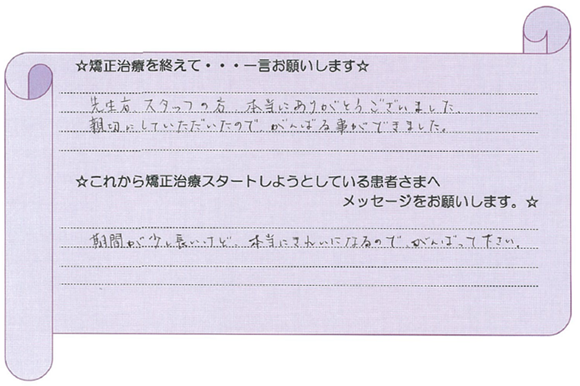 ☆矯正治療を終えて・・・一言お願いします☆
先生方、スタッフの方、本当にありがとうございました。
親切にしていただいたので、がんばる事ができました。
☆これから矯正治療スタートしようとしている患者さまへ
メッセージをお願いします。☆
期間が少し長いけど、本当にきれいになるので、がんばって下さい。